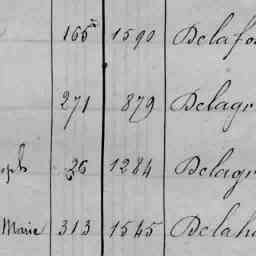 165 1590 Delafo
271 879 Delagr
eph 36 1284 Delagr
Marie 313 1545 Delaha